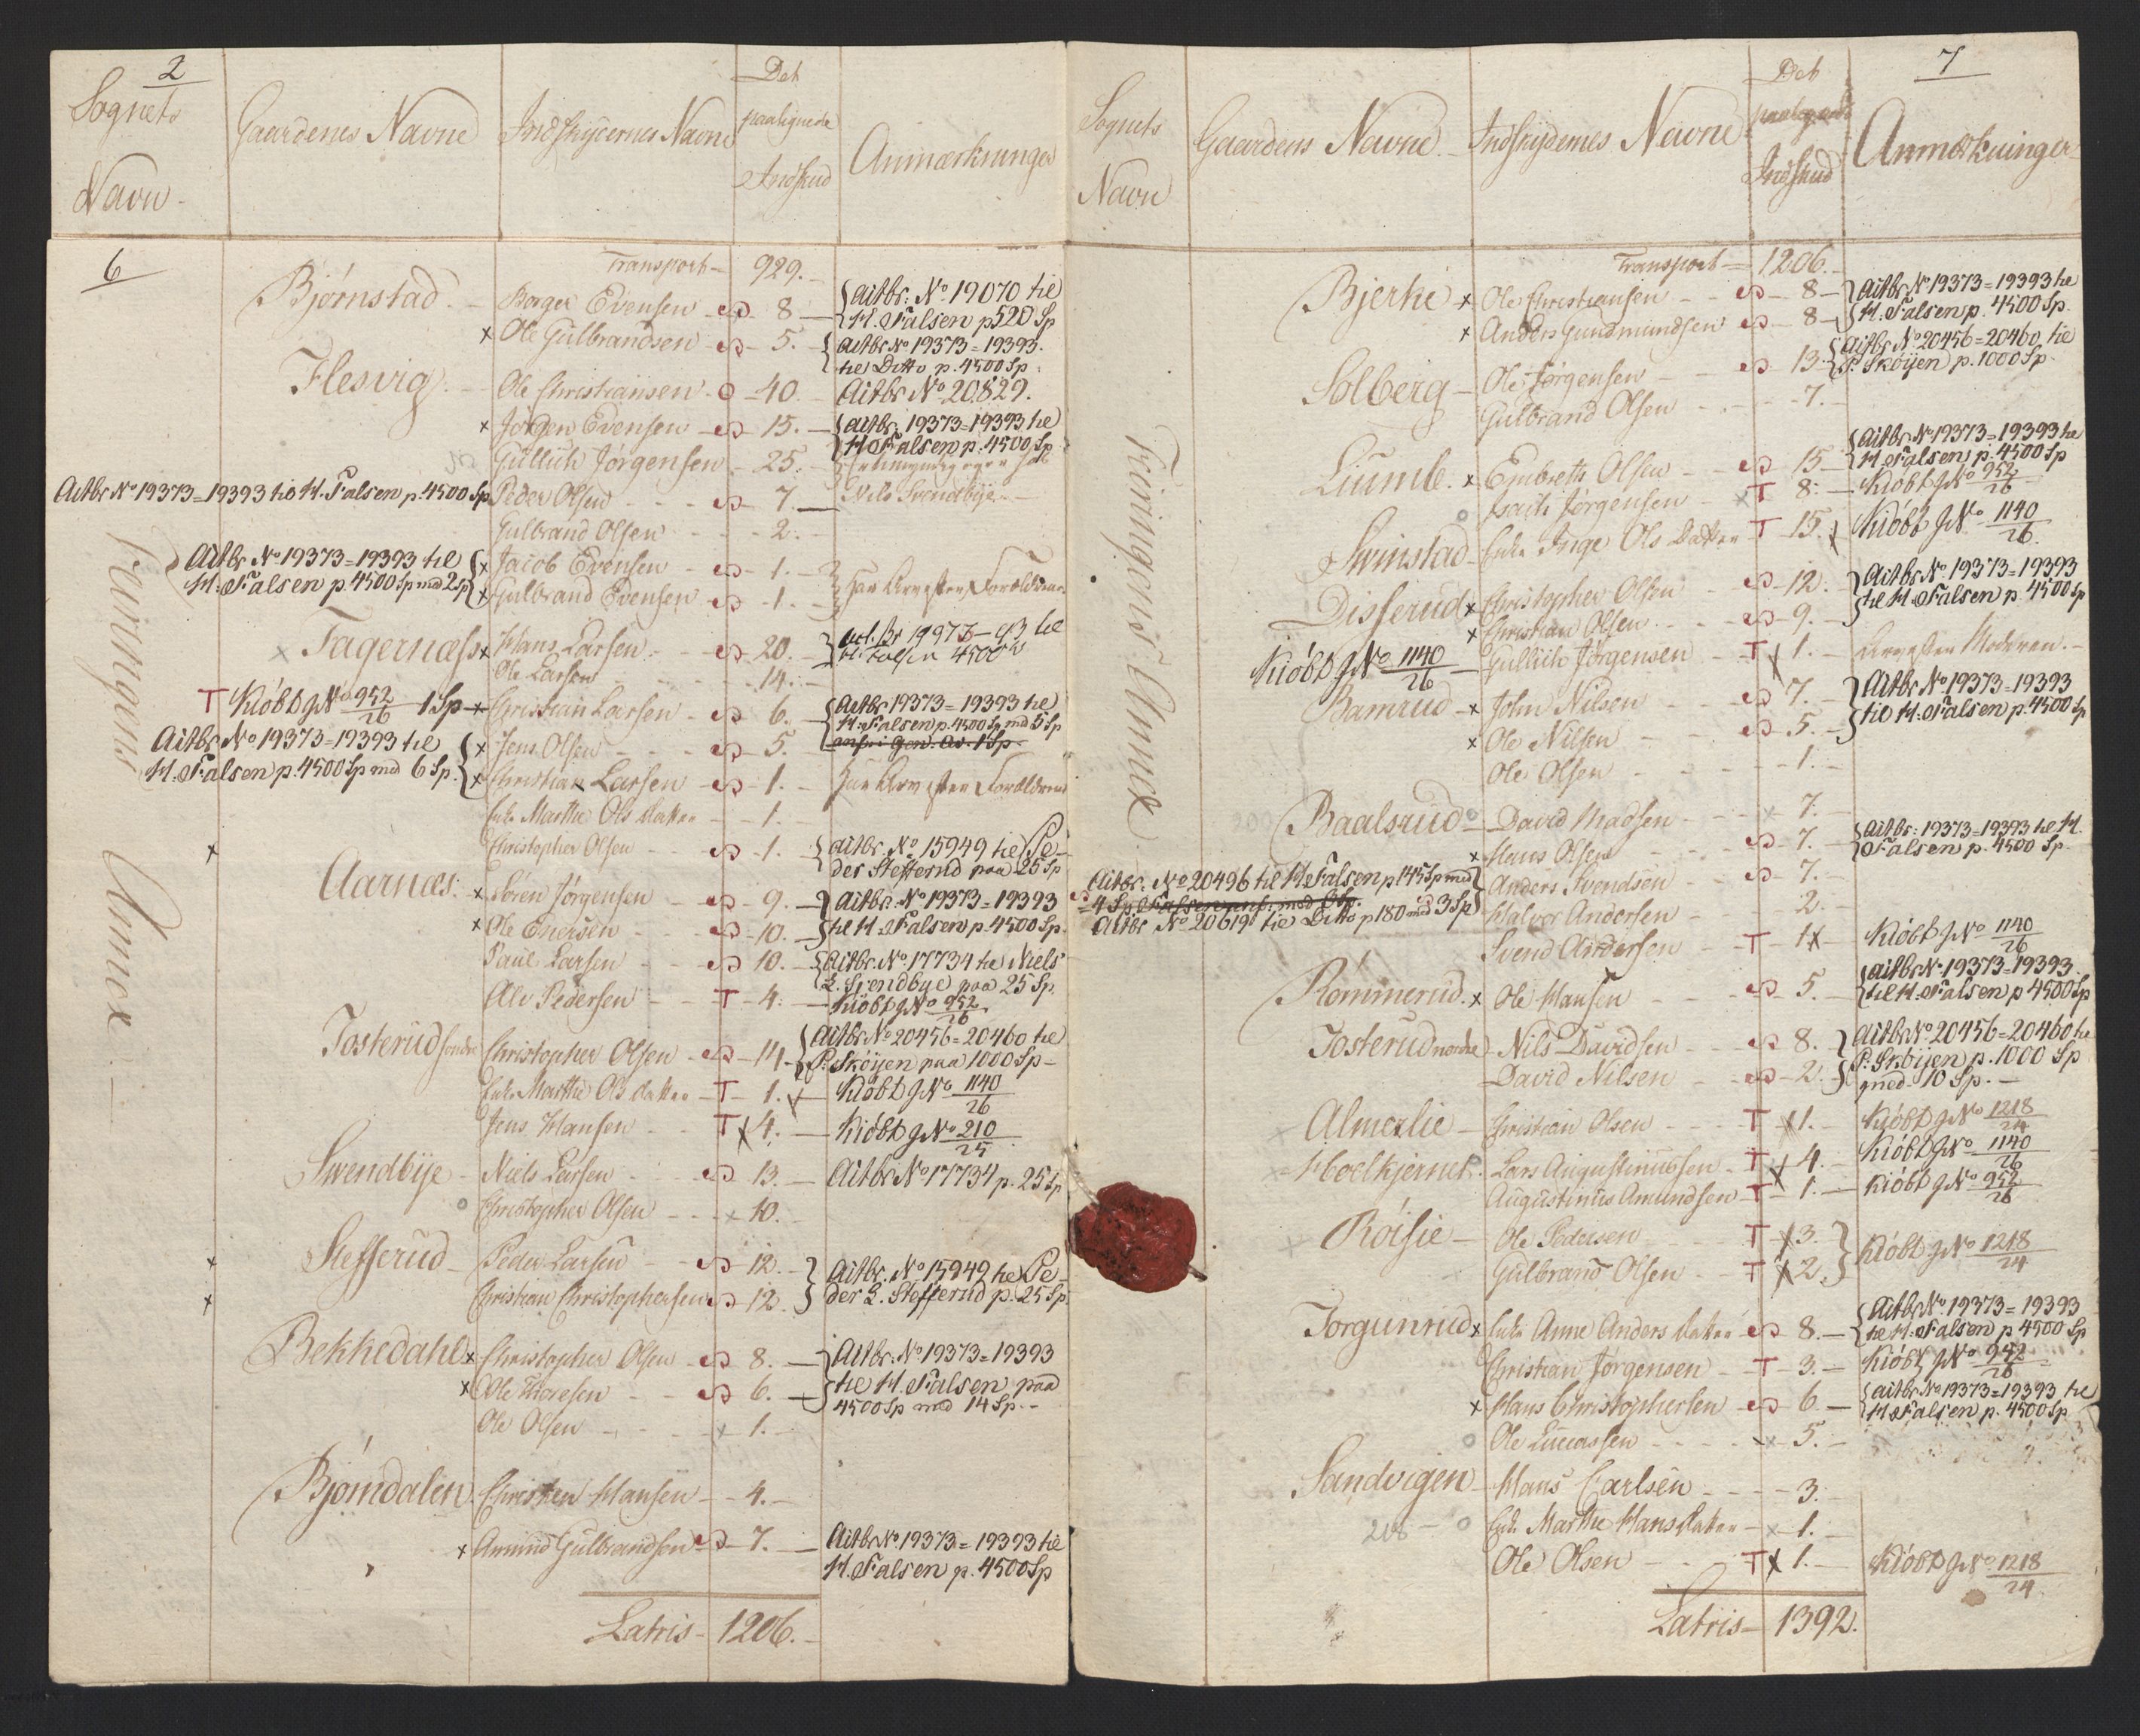 2
Sognets
Navn
Gaardenes Navne
Indskydernes Navne
Det
paalignede
Indskud
Anmærkninger
6
Transport - 929.
Bjørnstad - Borger Evensen - 8 - Actbr: No 19070 til
H. Falsen p 520 Sp
x Ole Gulbrandsen - 5. Actbr No 19373=19393.
til Ditto p. 4500 Sp
Flesvig. - Ole Christiansen - 40. Actbr No 20829.
x Jörgen Evensen - 15. - Actbr. 19373=19393 til
H. Falsen p. 4500 Sp
Gullich Jörgensen - 25.
Actbr No 19373=19393 til H. Falsen p. 4500 Sp Peder Olsen - 7. - Nils Svendbye
Gulbrand Olsen - 2.
Actbr No 19373=19393 til x Jacob Evensen - 1. -
H. Falsen p. 4500 Sp med 2 Sp x Gulbrand Evensen - 1. har Forældrene
Færingens Annex
x Fagernæss x Hans Larsen - 20. Act.Br 19973-93 til
H. Falsen 4500
Ole Larsen - 14.
T Kiöbt g No 952/26 1 Sp x Christian Larsen - 6. Actbr 19373=19393 til
H. Falsen p. 4500 Sp med 5 Sp
Actbr No 19373=19393 til x Jens Olsen - 5.
H. Falsen p. 4500 Sp med 6 Sp. x Christian Larsen - 1. har Forældrene
Enke Marthe Ols datter - 1.
x Christopher Olsen - 1. Actbr. No 15949 til Pe-
der Stefferud paa 25 Sp
Aarnæs. x Sören Jörgensen - 9. - Actbr. No 19373=19393
x Ole Enersen - 10. til H. Falsen p. 4500 Sp.
Paul Larsen - 10. Actbr. No 17734 til Niels
L. Svendbye paa 25 Sp.
Alv Pedersen - T 4. - Kiöbt g No 952/26
Josterud söndre Christopher Olsen - 14 - Actbr No 20456=20460 til
P. Sköyen paa 1000 Sp -
Enke Marthe Ols datter - T - 1. Kiöbt g No 1140/26
Jens Hansen T x 4. - Kiöbt g No 210/25
Svendbye - Niels Larsen - 13. - Actbr No 17734 p. 25 Sp
o Christopher Olsen - x 10. -
x Stefferud - Peder Larsen - 12. - Actbr. No 15949 til Pe-
x Christian Christophersen - 12. der L. Stefferud p. 25 Sp.
Bekkedahl x Christopher Olsen - 8. - Actbr. No 19373=19393
x Ole Thoresen - 6. - til H. Falsen paa
4500 Sp med 14 Sp. -
Ole Olsen - x 1. -
Bjørndalen. Christen Hansen - 4. -
x Amund Gulbrandsen - 7. - Actbr No 19373=19393 til
H. Falsen p. 4500 Sp
Latris - 1206. -
7
Sognets
Navn
Gaardens Navne
Indskydernes Navne
Det
paalignede
Indskud
Anmærkninger
Transport - 1206.
Bjerke x Ole Christiansen - 8 - Actbr No 19373=19393 til
x Anders Gundmundsen 8 - H. Falsen p. 4500 Sp.
Solberg - Ole Jörgensen - 13. Actbr No 20456=20460 til
P. Sköyen p. 1000 Sp.
Gulbrand Olsen - 7. -
Færingens Annex
Liumb. x Embreth Olsen - 15 - Actbr No 19373=19393 til
H. Falsen p. 4500 Sp
o Isach Jörgensen - x T 8. - Kiöbt g No 952/26
Svinstad - Enke Inge Ols Datter T 15. Kiöbt g No 1140/26.
Disserud x Christopher Olsen - 12. Actbr No 19373=19393
x Christian Olsen - 9. - til H. Falsen p. 4500 Sp
Kiöbt g No 1140/26 - Gullich Jörgensen - T 1. - Moderen. -
Bamrud - x John Nilsen - 7. - Actbr No 19373=19393
x Ole Nilsen - 5. - til H. Falsen p. 4500 Sp
Ole Olsen - 1. -
Baalsrud o David Madsen - x 7. -
x Hans Olsen - 7. - Actbr: 19373=19393 til H.
Falsen p. 4500 Sp.
Actbr. No 20496 til H. Falsen p 145 Sp med Anders Svendsen - 7. -
4 Sp. Halvor Andersen - 2. -
Actbr No 20619 til Ditto p 180 med 3 Sp
Svend Andersen - T - 1 x - Kiöbt g No 1140/26
Rommerud. x Ole Hansen - 5. - Actbr No 19373=19393
til H. Falsen p 4500 Sp
Josterud nordre - Nils Davidsen - 8. Actbr No 20456=20460 til
David Nilsen - 2. P. Sköyen p. 1000 Sp
med 10 Sp. -
Almerlie - Christian Olsen - T x 1. - Kiöbt g No 1218/24
Hoelkjernet. Lars Augustinussen - T x 4. - Kiöbt g No 1140/26
Augustinus Amundsen - T - 1. - Kiöbt g No 952/26
x Röisie - Ole Pedersen T x 3.
Gulbrand Olsen - T x 2. Kiöbt g No 1218/24
Jorgunrud x Enke Anne Anders datter 8. - Actbr No 19373=19393
til H. Falsen p 4500 Sp
Christian Jörgensen - T - 3. - Kiöbt g No 952/26
x Hans Christophersen - 6 - Actbr No 19373=19393 til
H. Falsen p. 4500 Sp
o Ole Lucassen - x 5. -
Sandvigen - Hans Carlsen - 3. -
208 - o Enke Marthe Hans datter - x 1. -
Ole Olsen - T x 1. - Kiöbt g No 1218/24.
Latris - 1392.